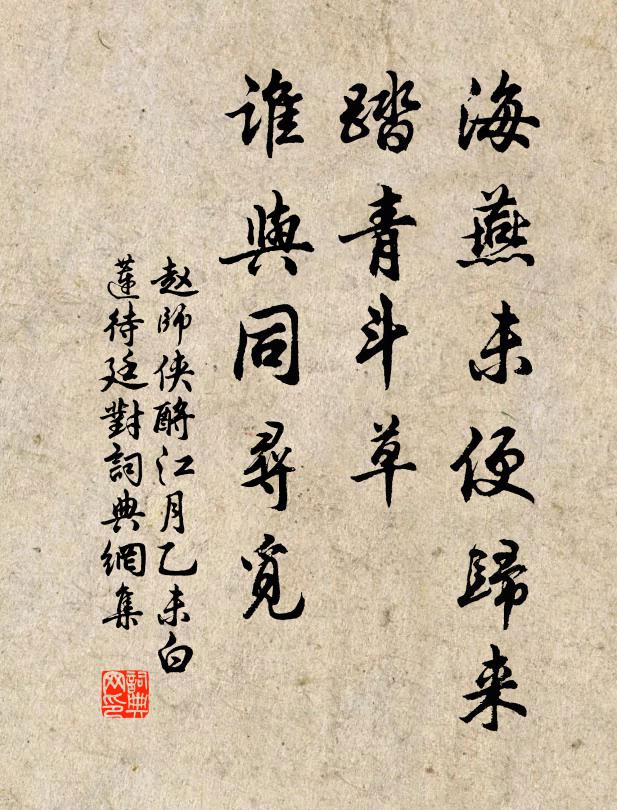 海燕未便歸来
踏青斗草
誰與同尋覓
赵師侠酹江月乙未白
蓮待廷對詞典網集
詞典
网印